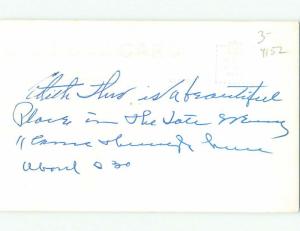 3-
4152
this is a beautiful
Place in the late evening
came through here
about 8 30